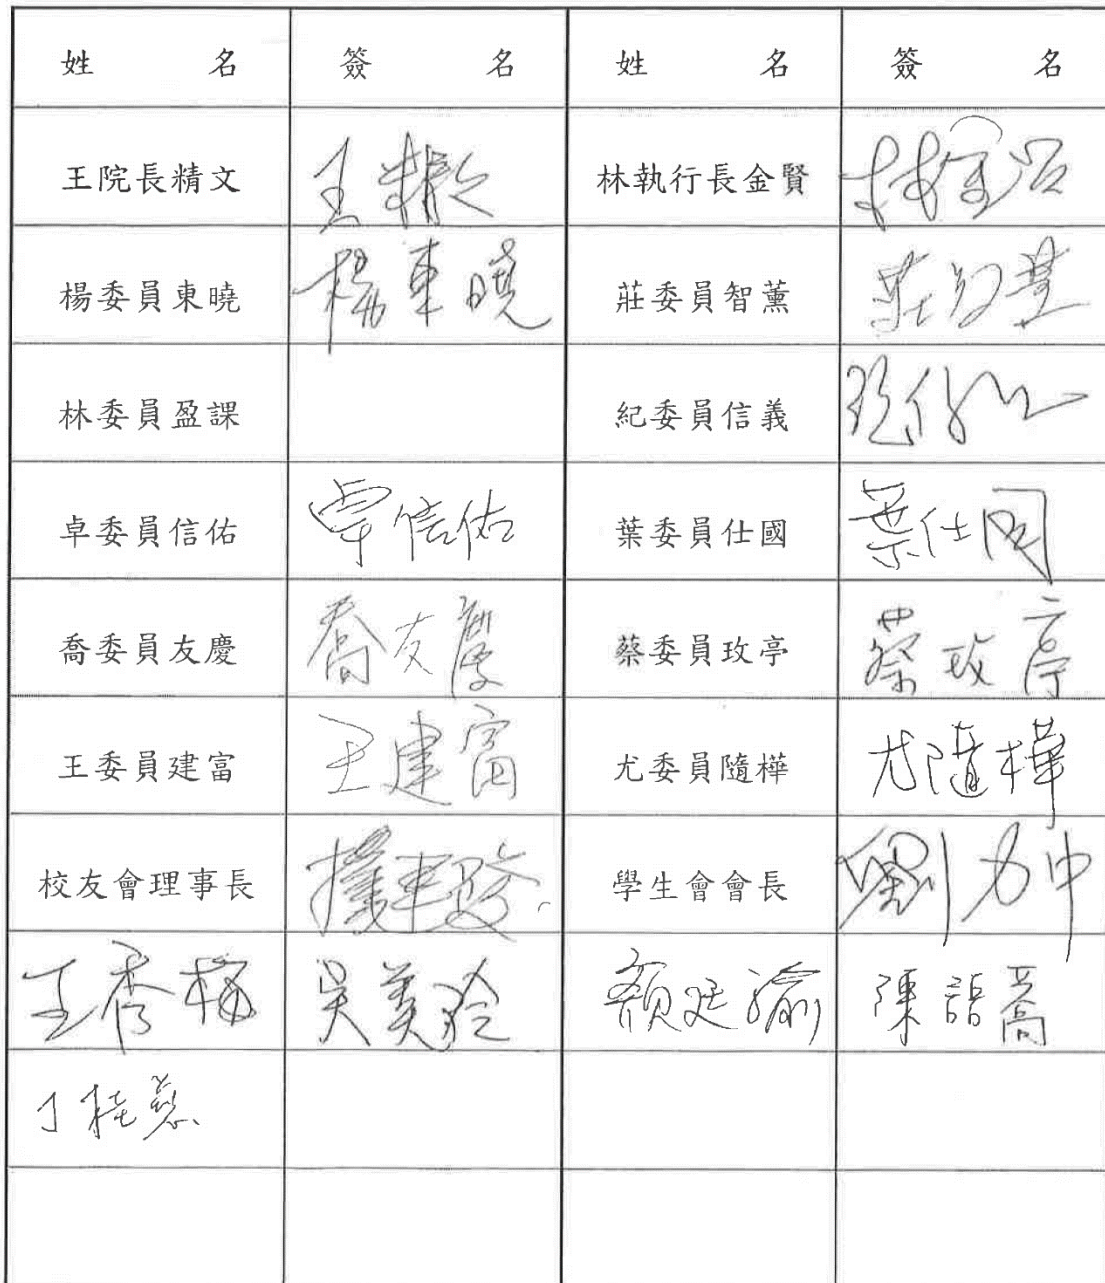 姓名 簽名 姓名 簽名
王院長精文 王精文 林執行長金賢 林金賢
楊委員東曉 楊東曉 莊委員智薰 莊智薰
林委員盈課 紀委員信義 紀信義
卓委員信佑 卓信佑 葉委員仕國 葉仕国
喬委員友慶 喬友慶 蔡委員玫亭 蔡玫亭
王委員建富 王建富 尤委員隨樺 尤隨樺
校友會理事長 學生會會長 劉力中
王秀梅 吳美玲 顏廷諭 陳語喬
丁桂慧